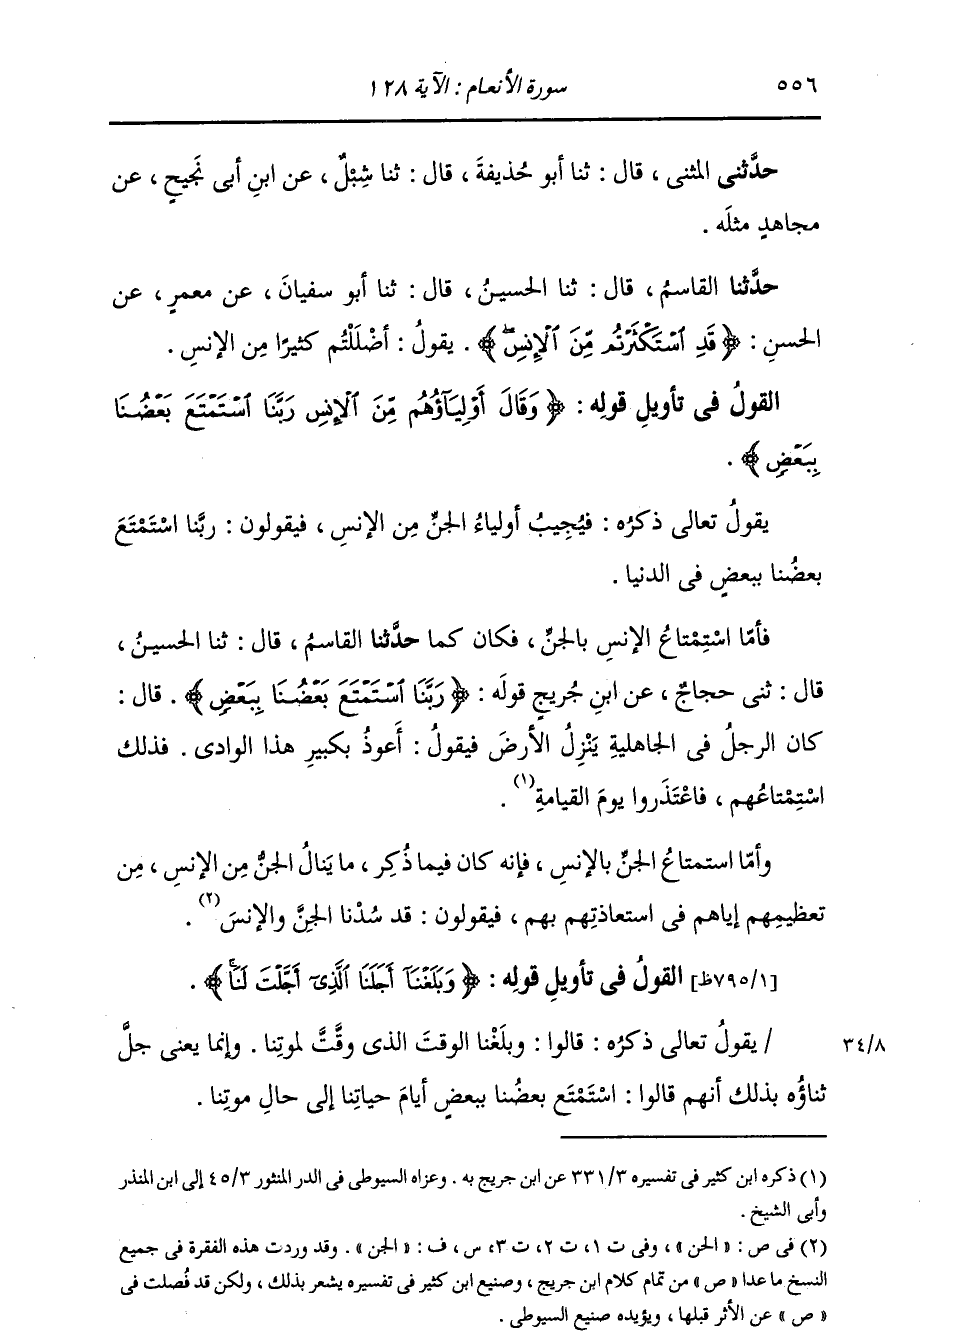 ٥٥٦ سورة الأنعام : الآية ١٢٨
حدَّثنى المثنى ، قال : ثنا أبو حُذيفةَ ، قال : ثنا شِبْلٌ ، عن ابنِ أبى نَجيحٍ ، عن
مجاهدٍ مثلَه .
حدَّثنا القاسمُ ، قال : ثنا الحسينُ ، قال : ثنا أبو سفيانَ ، عن معمرٍ ، عن
الحسنِ : ﴿ قَدِ ٱسْتَكْثَرْتُم مِّنَ ٱلْإِنسِۖ ﴾ . يقولُ : أضْلَلْتُم كثيرًا مِن الإنسِ .
القولُ فى تأويلِ قولِه : ﴿ وَقَالَ أَوْلِيَآؤُهُم مِّنَ ٱلْإِنسِ رَبَّنَا ٱسْتَمْتَعَ بَعْضُنَا
بِبَعْضٍ ﴾ .
يقولُ تعالى ذكرُه : فيُجِيبُ أولياءُ الجنِّ مِن الإنسِ ، فيقولون : ربَّنا اسْتَمْتَعَ
بعضُنا ببعضٍ فى الدنيا .
فأمّا اسْتِمْتاعُ الإنسِ بالجنِّ ، فكان كما حدَّثنا القاسمُ ، قال : ثنا الحسينُ ،
قال : ثنى حجاجٌ ، عن ابنِ جُريجٍ قولَه : ﴿ رَبَّنَا ٱسْتَمْتَعَ بَعْضُنَا بِبَعْضٍ ﴾ . قال :
كان الرجلُ فى الجاهليةِ يَنْزِلُ الأرضَ فيقولُ : أَعوذُ بكبيرِ هذا الوادى . فذلك
اسْتِمْتاعُهم ، فاعْتَذَروا يومَ القيامةِ(١) .
وأمّا استمتاعُ الجنِّ بالإنسِ ، فإنه كان فيما ذُكِر ، ما يَنالُ الجنُّ مِن الإنسِ ، مِن
تعظيمِهم إياهم فى استعاذتِهم بهم ، فيقولون : قد سُدْنا الجِنَّ والإنسَ(٢) .
[٧٩٥/١ظ] القولُ فى تأويلِ قولِه : ﴿ وَبَلَغْنَآ أَجَلَنَا ٱلَّذِىٓ أَجَّلْتَ لَنَاۚ ﴾ .
٣٤/٨ / يقولُ تعالى ذكرُه : قالوا : وبلَغْنا الوقتَ الذى وقَّتَّ لموتِنا . وإنما يعنى جلَّ
ثناؤُه بذلك أنهم قالوا : اسْتَمْتَع بعضُنا ببعضٍ أيامَ حياتِنا إلى حالِ موتِنا .
(١) ذكره ابن كثير فى تفسيره ٣٣١/٣ عن ابن جريج به . وعزاه السيوطى فى الدر المنثور ٤٥/٣ إلى ابن المنذر
وأبى الشيخ .
(٢) فى ص : « الحن » ، وفى ت ١، ت ٢، ت ٣، س ، ف : « الجن » . وقد وردت هذه الفقرة فى جميع
النسخ ما عدا « ص » من تمام كلام ابن جريج ، وصنيع ابن كثير فى تفسيره يشعر بذلك ، ولكن قد فُصلت فى
« ص » عن الأثر قبلها ، ويؤيده صنيع السيوطى .